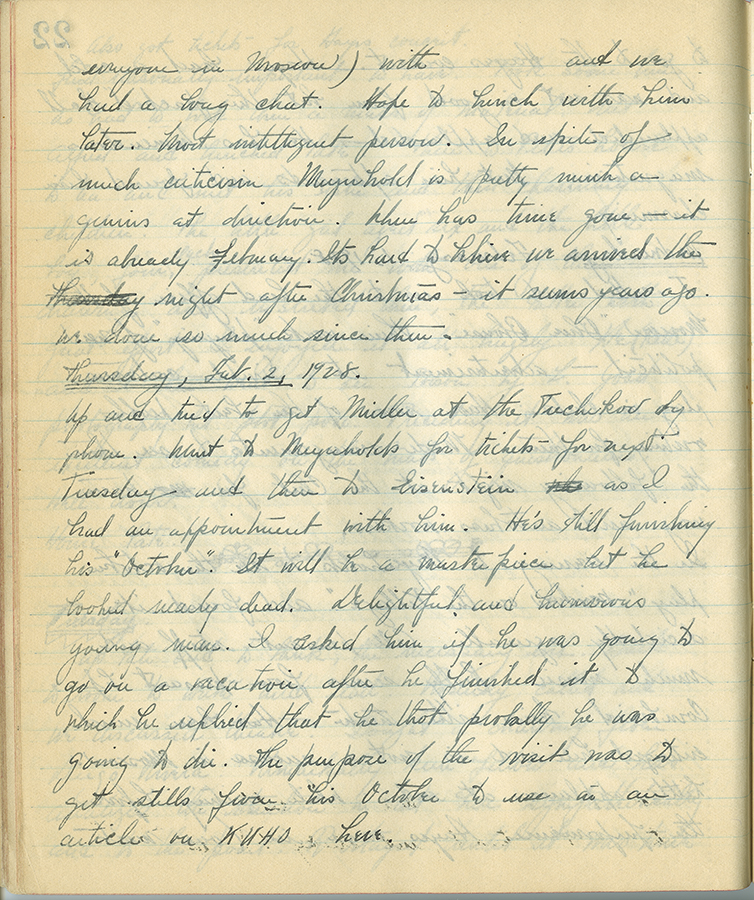 22
everyone in Moscow) with and we
had a long chat. Hope to lunch with him
later. Most intelligent person. In spite of
much criticism Meyerhold is pretty much a
genius at direction. Where has time gone — it
is already February. Its hard to believe we arrived the
Thursday night after Christmas — it seems years ago.
We done so much since then.
Thursday, Feb. 2, 1928.
Up and tried to get Miller at the Tuchekov by
phone. Went to Meyerholds for tickets for next
Tuesday and then to Eisenstein as I
had an appointment with him. He's still finishing
his "October". It will be a masterpiece but he
looked nearly dead. Delightful and humorous
young man. I asked him if he was going to
go on a vacation after he finished it to
which he replied that he thot probally he was
going to die. The purpose of the visit was to
get stills from his October to use in an
article on KUHO here.